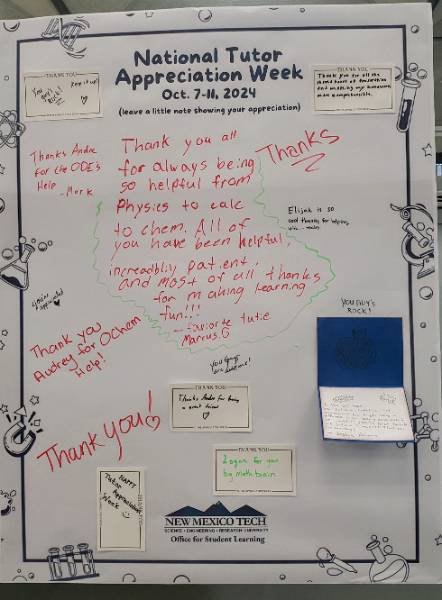 National Tutor
Appreciation Week
Oct. 7-11, 2024
(leave a little note showing your appreciation)
THANK YOU
You guys
Rock!
Keep it up!
THANK YOU
Thank you for all the
Thanks Andre
for the ODE's
Help -Mark
Thank you all
for always being
so helpful from
Physics to calc
to chem. All of
you have been helpful,
increadbliy patient,
and most of all thanks
for making learning
fun!!!
- favorite tutie
Marcus.G
Thanks
Elijah is so
cool thanks for helping
You're
appreciated
YOU GUY'S
ROCK!
Thank you
Audrey for OChem
Help!
You guys
are awesome!
THANK YOU
Thanks Andre for being
a great friend
Thank You!
THANK YOU
Logan for your
big math brain
HAPPY
Tutor Appreciation
Week
NEW MEXICO TECH
SCIENCE • ENGINEERING • RESEARCH UNIVERSITY
Office for Student Learning